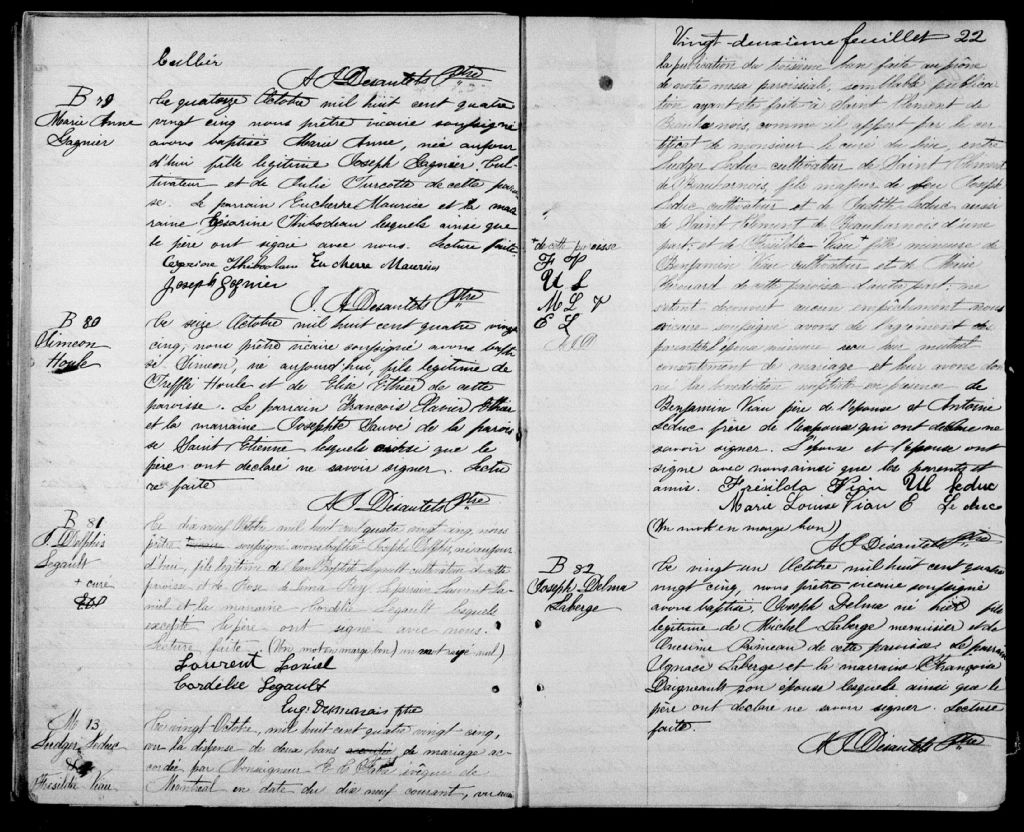 Cullier
A J Desautels Ptre
B 79
Marie Anne
Gagnier
Le quatorze Octobre mil huit cent quatre
vingt cinq nous prêtre vicaire soussigné
avons baptisé Marie Anne, née aujour
d'hui fille legitime Joseph Gagnier cul-
tivateur et de Julie Turcotte de cette parois
se. Le parrain Eucherre Maurice et la mar
raine Césarine Thibodeau lesquels ainsi que
le père ont signé avec nous. Lecture faite
Cezarine Thibodeau Eucherre Maurice
Joseph Gagnier
J. A Desautels Ptre
B 80
Simeon
Houle
Le seize Octobre mil huit cent quatre vingt
cinq, nous prêtre vicaire soussigné avons bapti
sé Simeon, né aujourd'hui, fils legitime de
Trefflé Houle et de Elise Ethier de cette
paroisse. Le parrain François Xavier Ethier
et la marraine Josephte Sauvé de la parois
se Saint Etienne lesquels ainsi que le
père ont déclaré ne savoir signer. Lectu
re faite
A J Desautels Ptre
B 81
J. Delphis
Legault
+ curé
Le dix neuf Octobre mil huit cent quatre vingt cinq nous
prêtre vicaire soussigné avons baptisé Joseph Delphis, né aujour
d'hui, fils legitime de Jean Baptiste Legault cultivateur de cette
paroisse et de Rose de Lima Roy. Le parrain Laurent La
niel et la marraine Cordélie Legault lesquels
excepté le père ont signé avec nous.
Lecture faite (Un mot en marge bon) un mot rayé nul)
Laurent Laniel
Cordélie Legault
Eug. Demarais ptre
M 13
Ludger Leduc
&
Thesilda Viau
Le vingt Octobre, mil huit cent quatre vingt cinq,
vu la dispense de deux bans de mariage ac
cordée par Monseigneur E. C. Fabre évêque de
Montreal en date du dix neuf courant, vu aussi
Vingt-deuxième feuillet 22
la publication du troisième ban faite au prône
de notre messe paroissiale, semblable publica
tion ayant été faite à Saint Clement de
Beauharnois, comme il appert par le cer
tificat de monsieur le curé du lieu, entre
Ludger Leduc cultivateur de Saint Clement
de Beauharnois, fils majeur de feu Joseph
Leduc cultivateur et de Judith Leduc aussi
de Saint Clement de Beauharnois d'une
part; et de Thesilda Viau + fille mineure de
Benjamin Viau cultivateur et de Marie
de cette paroisse d'autre part; ne
s'étant decouvert aucun empêchement nous
vicaire soussigné avons de l'agrement des
parents de l'épouse mineure reçu leur mutuel
consentement de mariage et leur avons don
né la benediction nuptiale en presence de
Benjamin Viau père de l'épouse et Antoine
Leduc frère de l'epoux qui ont declaré ne
savoir signer. L'époux et l'épouse ont
signé avec nous ainsi que les parents et
amis. Fresilda Viau U L Leduc
Marie Louise Viau E Leduc
(Un mot en marge bon)
A J Desautels Ptre
+ de cette paroisse
F V
U L
M L V
E L
B 82
Joseph Delma
Laberge
Le vingt un Octobre mil huit cent quatre
vingt cinq, nous prêtre vicaire soussigné
avons baptisé, Joseph Delma né hier fils
legitime de Michel Laberge menuisier et de
Onesime Primeau de cette paroisse. Le parrain
Ugnace Laberge et la marraine Françoise
Daigneault son épouse lesquels ainsi que le
père ont declaré ne savoir signer. Lecture
faite.
A J Desautels Ptre